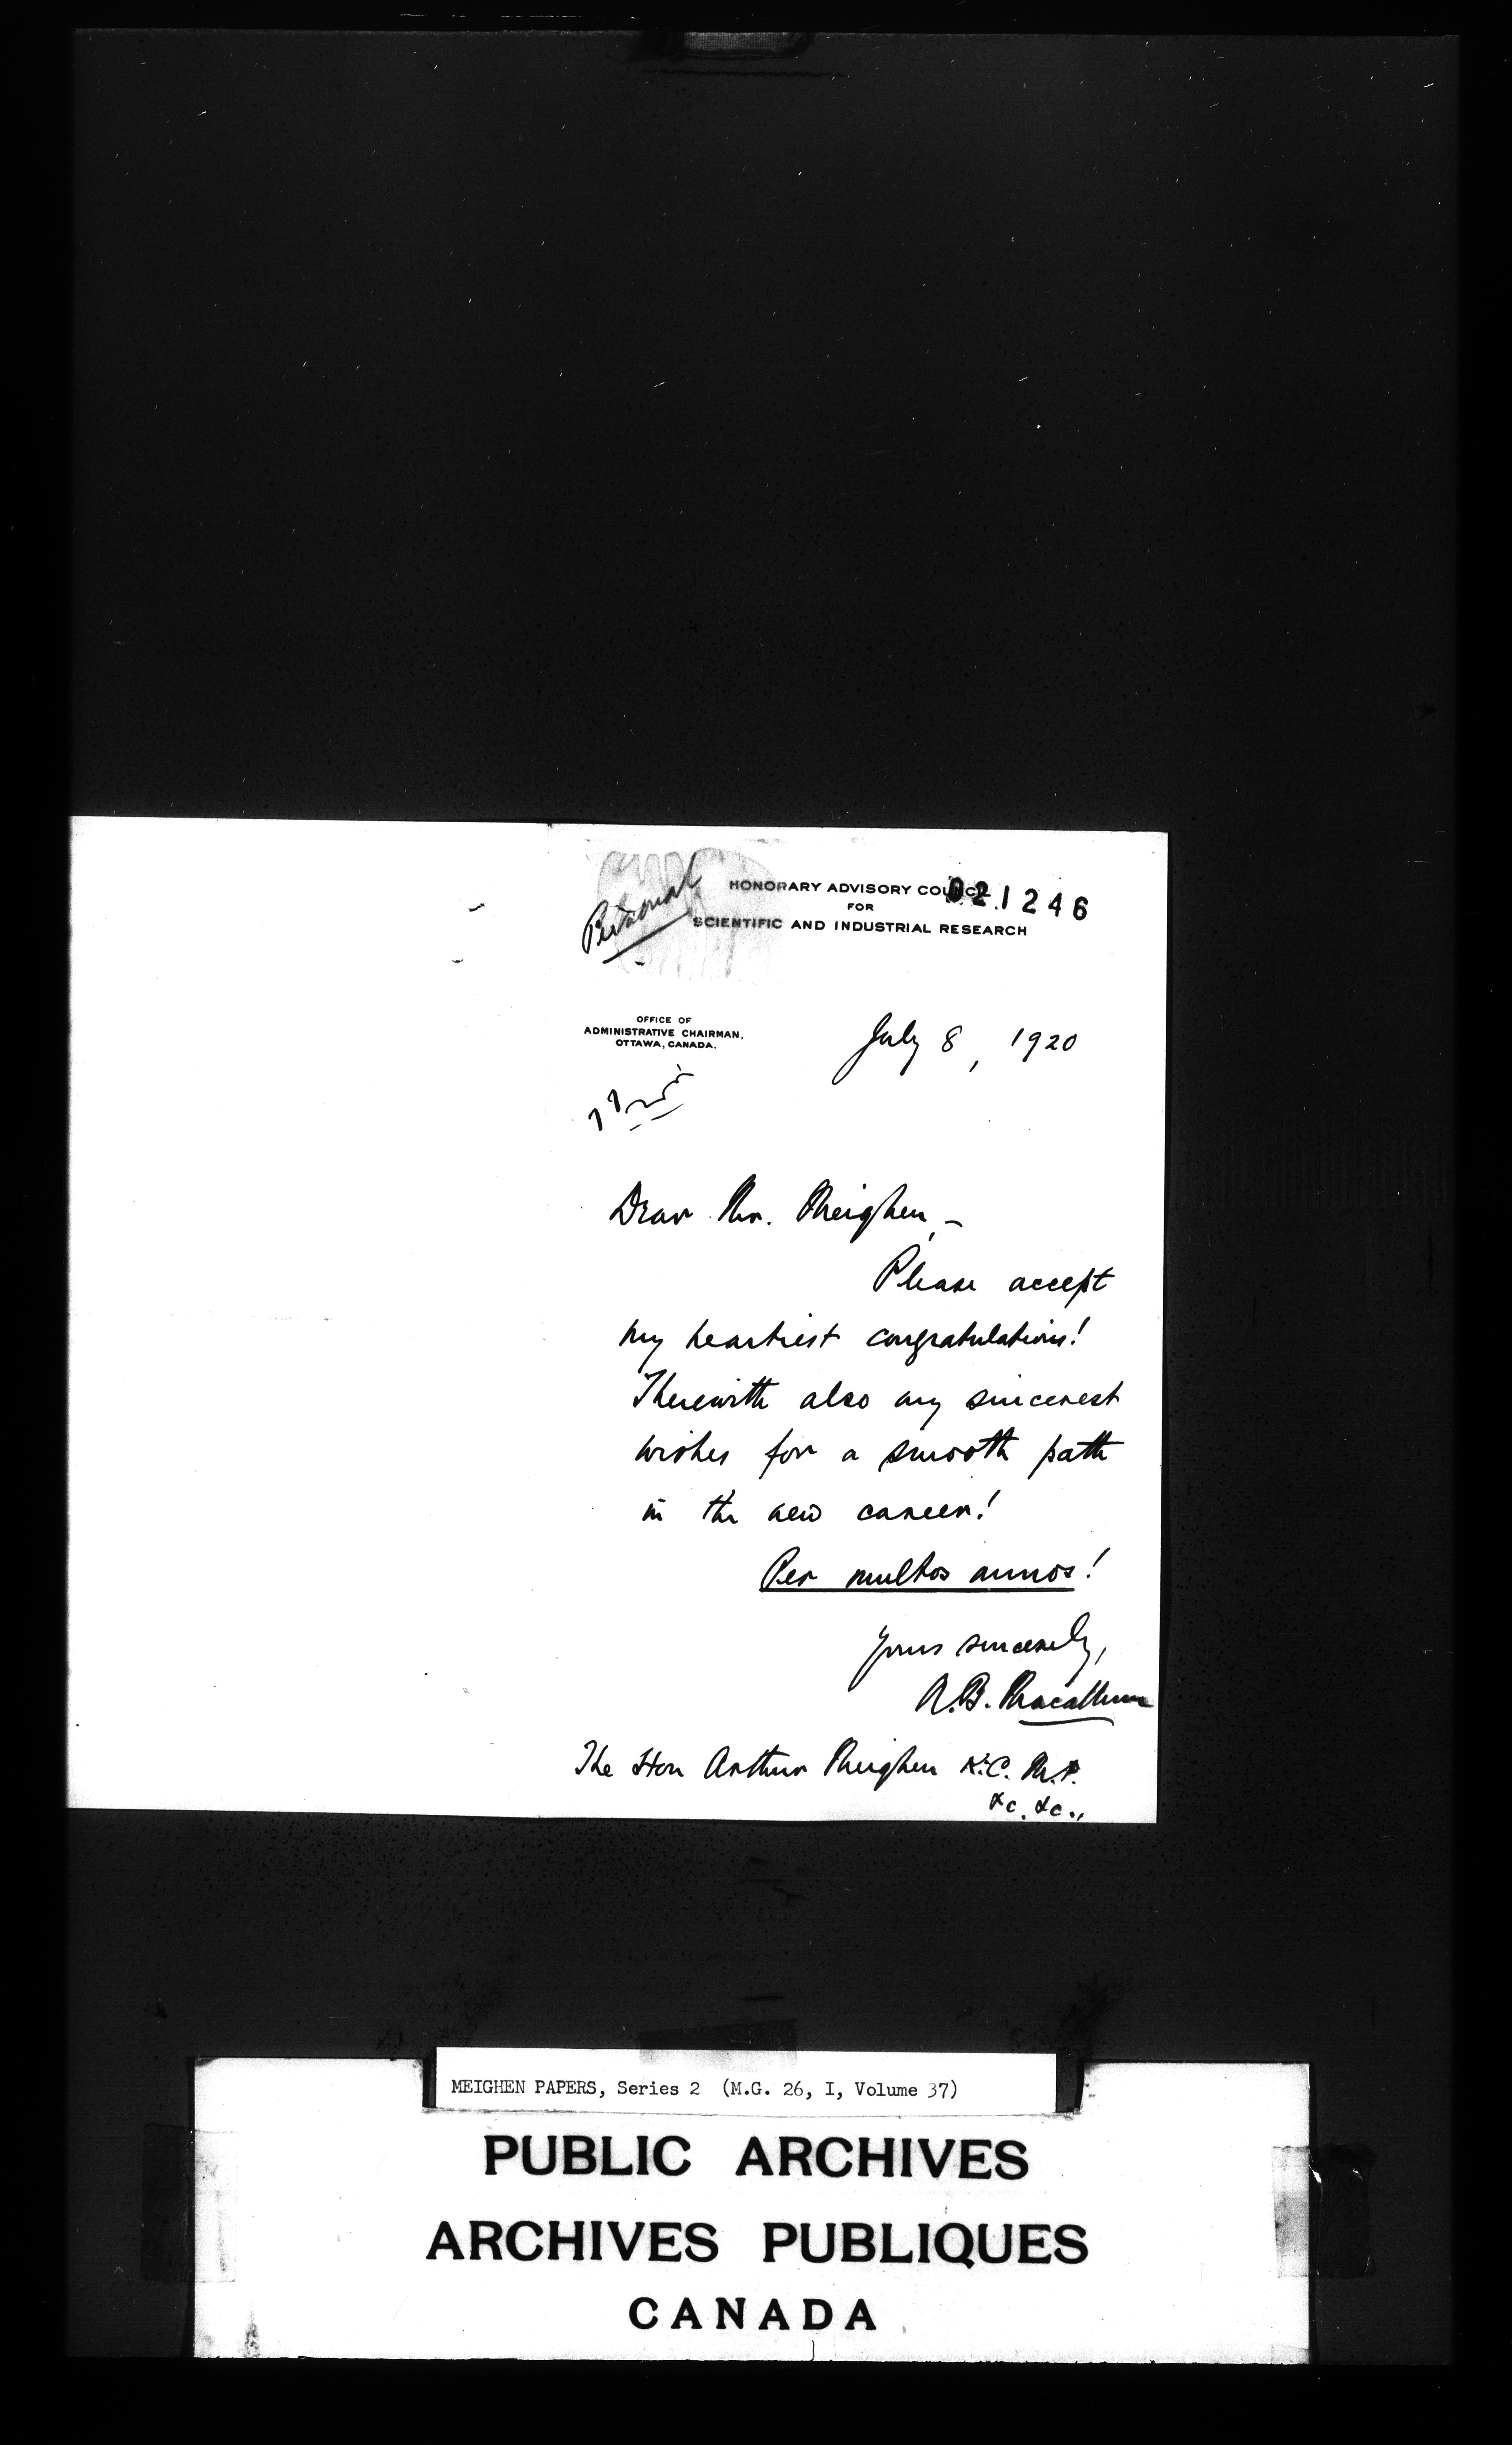 Personal
HONORARY ADVISORY COUNCIL
021246
FOR
SCIENTIFIC AND INDUSTRIAL RESEARCH
OFFICE OF
ADMINISTRATIVE CHAIRMAN,
OTTAWA, CANADA.
July 8, 1920
Dear Mr. Meighen, –
Please accept
my heartiest congratulations!
Therewith also my sincerest
wishes for a smooth path
in the new career!
Per multos annos!
Yours sincerely,
A.B. Macallum
The Hon Arthur Meighen K.C. M.P.
&c. &c.,
MEIGHEN PAPERS, Series 2 (M.G. 26, I, Volume 37)
PUBLIC ARCHIVES
ARCHIVES PUBLIQUES
CANADA